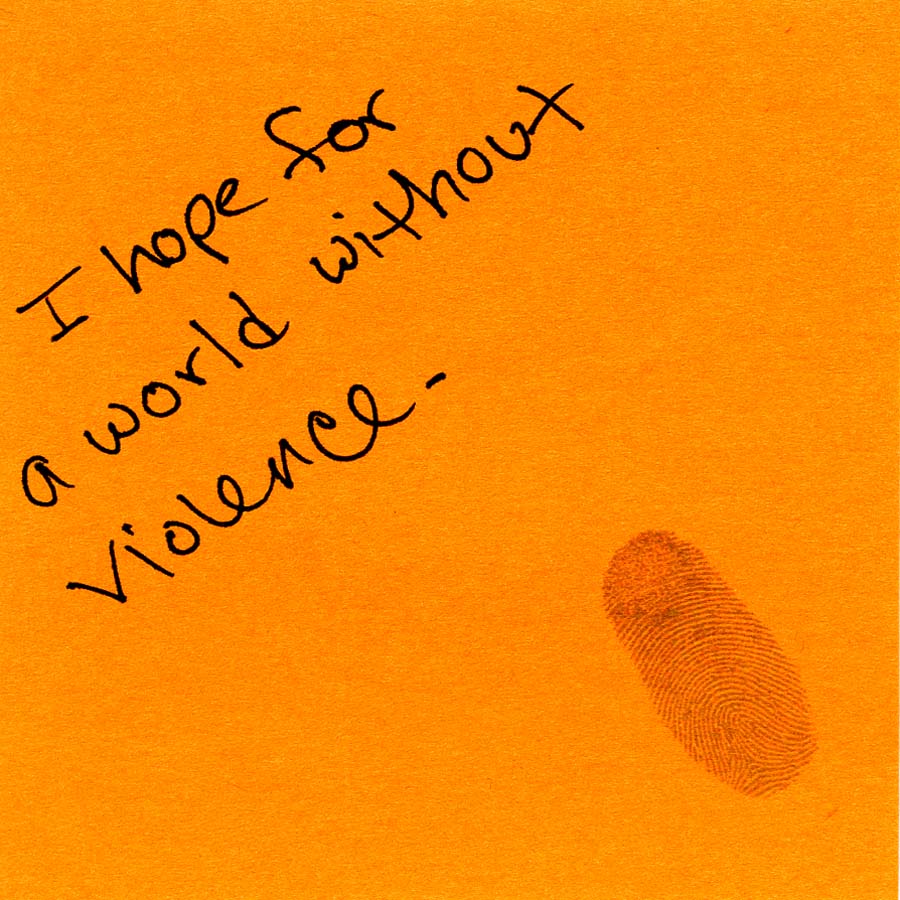 I hope for
a world without
violence-